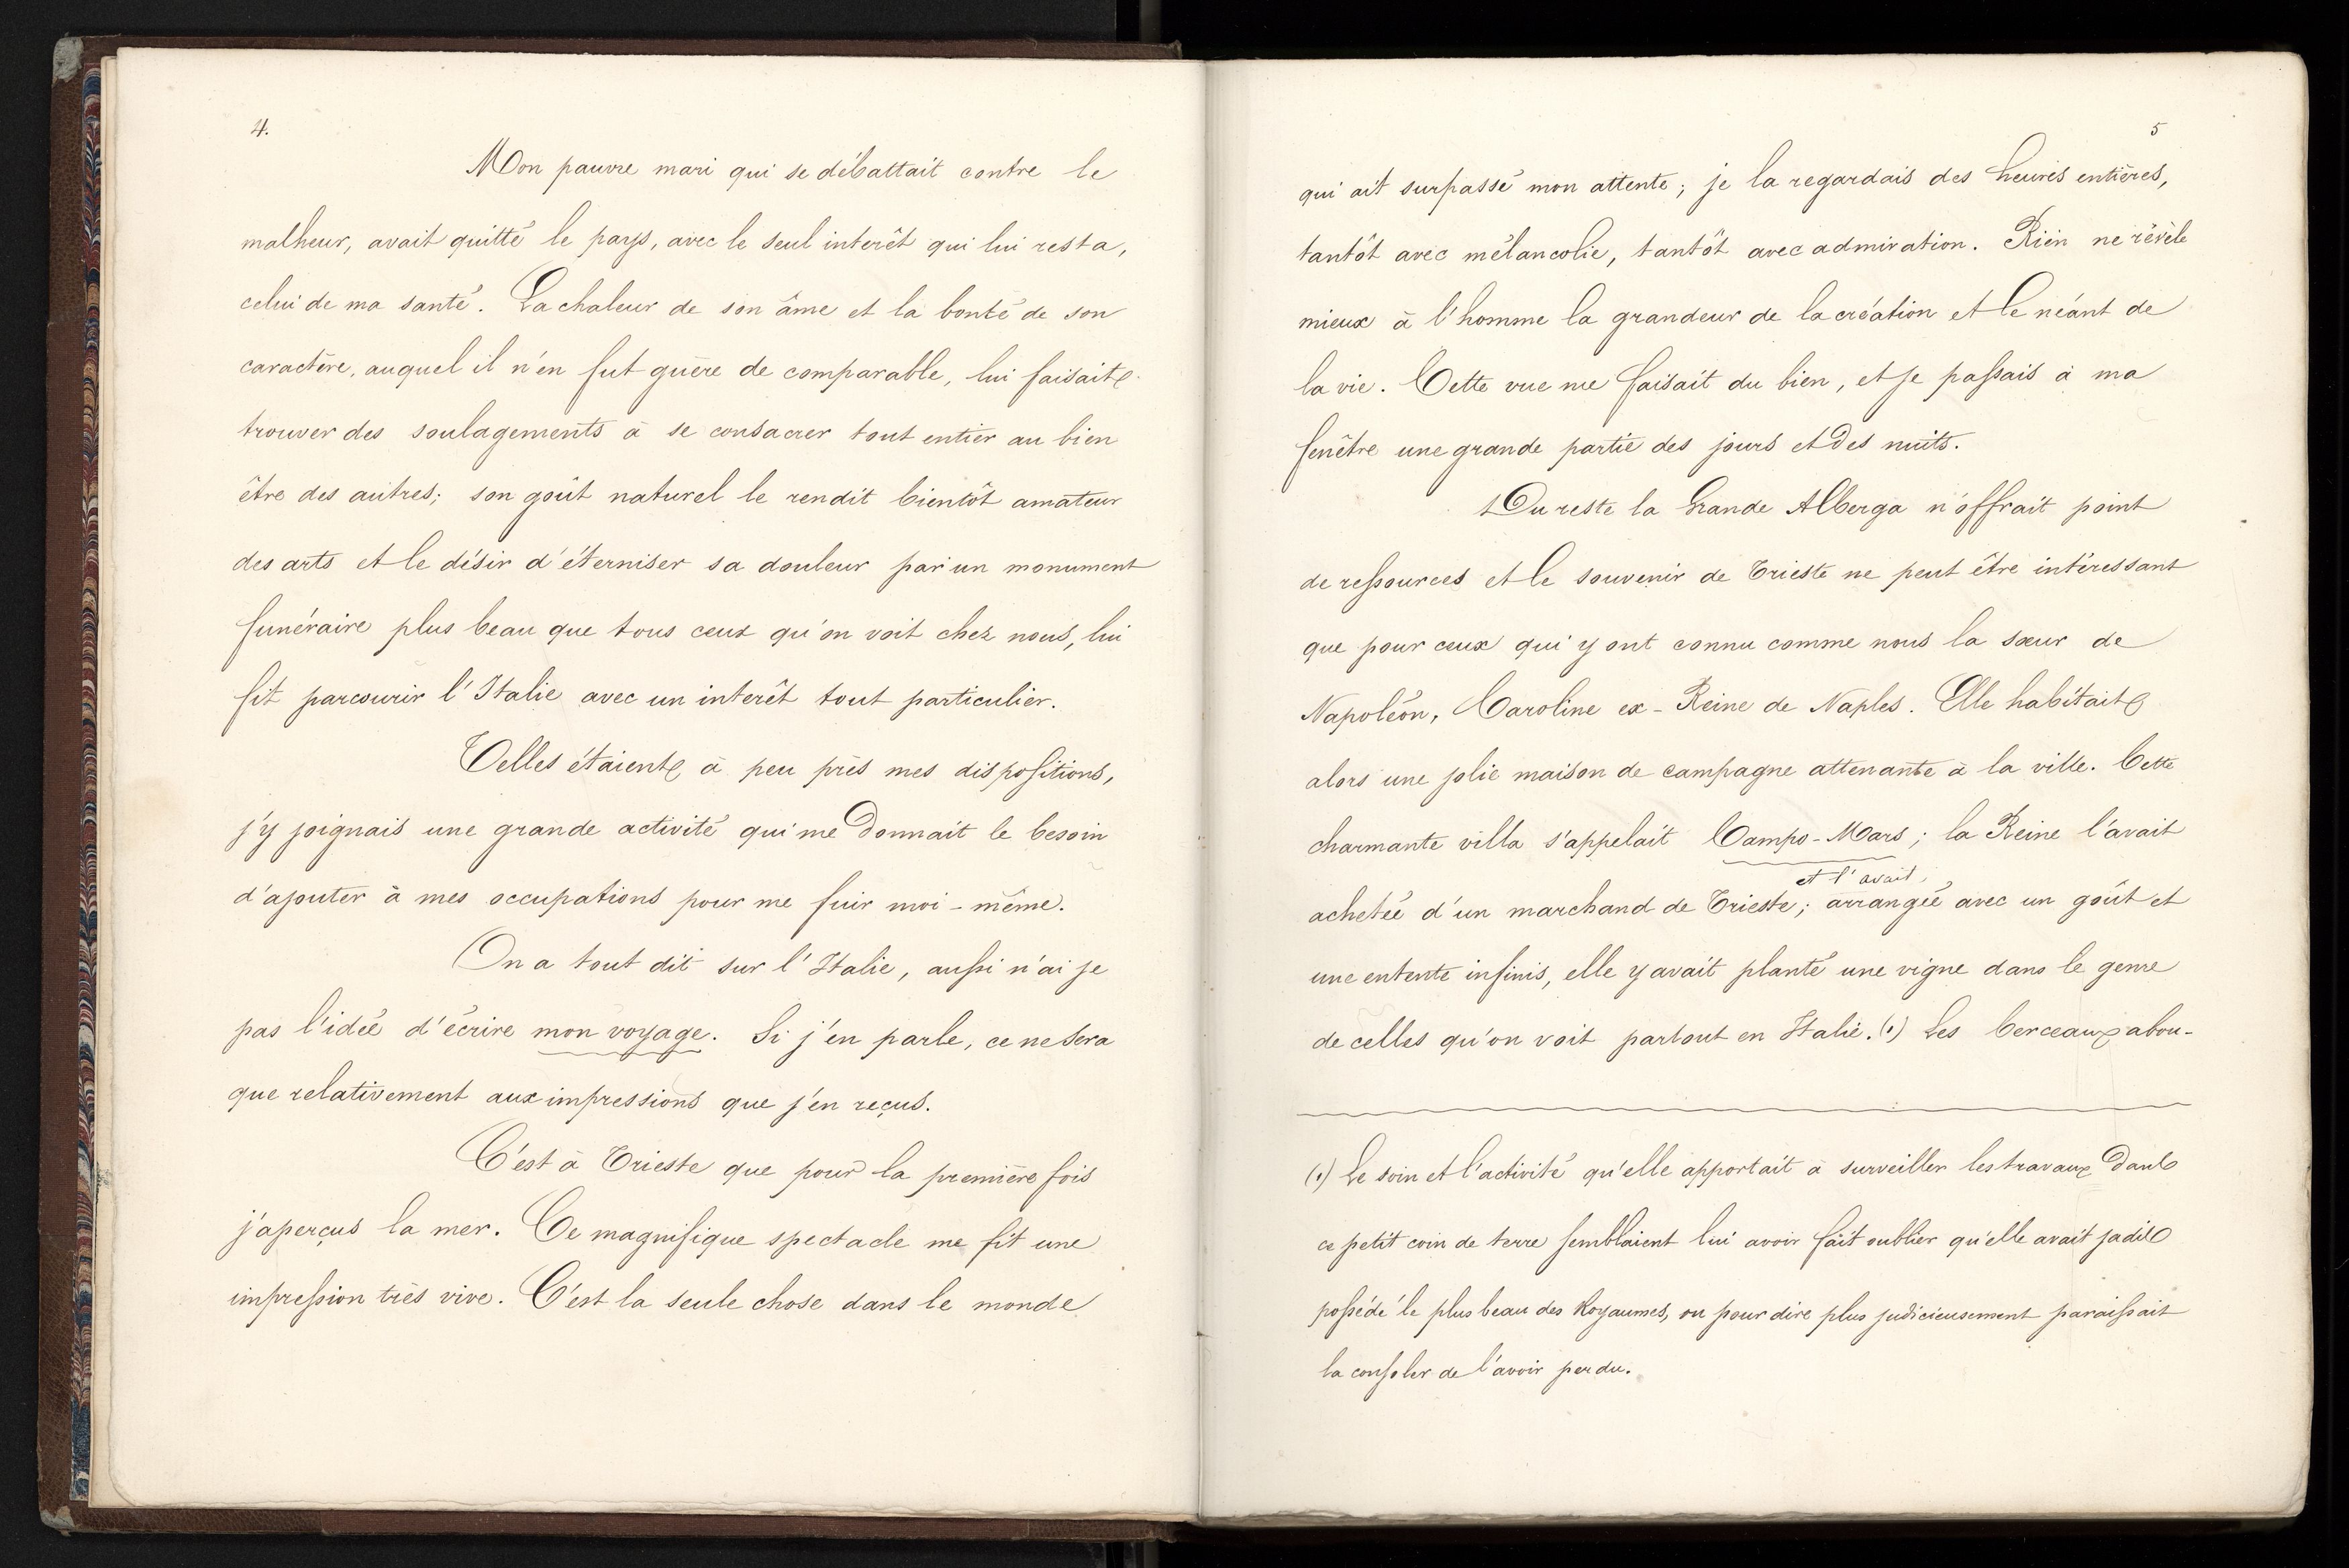 4.
Mon pauvre mari qui se débattait contre le
malheur, avait quitté le pays, avec le seul interêt qui lui resta,
celui de ma santé. La chaleur de son âme et la bonté de son
caractère, auquel il n'en fut guère de comparable, lui faisait
trouver des soulagements à se consacrer tout entier au bien
être des autres; son goût naturel le rendit bientôt amateur
des arts et le désir d'éterniser sa douleur par un monument
funéraire plus beau que tous ceux qu'on voit chez nous, lui
fit parcourir l'Italie avec un interêt tout particulier.
Telles étaient à peu près mes dispositions,
j'y joignais une grande activité qui me donnait le besoin
d'ajouter à mes occupations pour me fuir moi-même.
On a tout dit sur l'Italie, aussi n'ai je
pas l'idée d'écrire mon voyage. Si j'en parle, ce ne sera
que relativement aux impressions que j'en reçus.
C'est à Trieste que pour la première fois
j'aperçus la mer. Ce magnifique spectacle me fit une
impression très vive. C'est la seule chose dans le monde
5
qui ait surpassé mon attente; je la regardais des heures entières,
tantôt avec mélancolie, tantôt avec admiration. Rien ne révèle
mieux à l'homme la grandeur de la création et le néant de
la vie. Cette vue me faisait du bien, et je passais à ma
fenêtre une grande partie des jours et des nuits.
Du reste la Grande Alberga n'offrait point
de ressources et le souvenir de Trieste ne peut être intéressant
que pour ceux qui y ont connu comme nous la sœur de
Napoléon, Caroline ex-Reine de Naples. Elle habitait
alors une jolie maison de campagne attenante à la ville. Cette
charmante villa s'appelait Campo-Mars; la Reine l'avait
et l'avait
achetée d'un marchand de Trieste; arrangée avec un goût et
une entente infinis, elle y avait planté une vigne dans le genre
de celles qu'on voit partout en Italie. (1) Les berceaux abou-
(1) Le soin et l'activité qu'elle apportait à surveiller les travaux dans
ce petit coin de terre semblaient lui avoir fait oublier qu'elle avait jadis
possédé le plus beau des Royaumes, ou pour dire plus judicieusement paraissait
la consoler de l'avoir perdu.